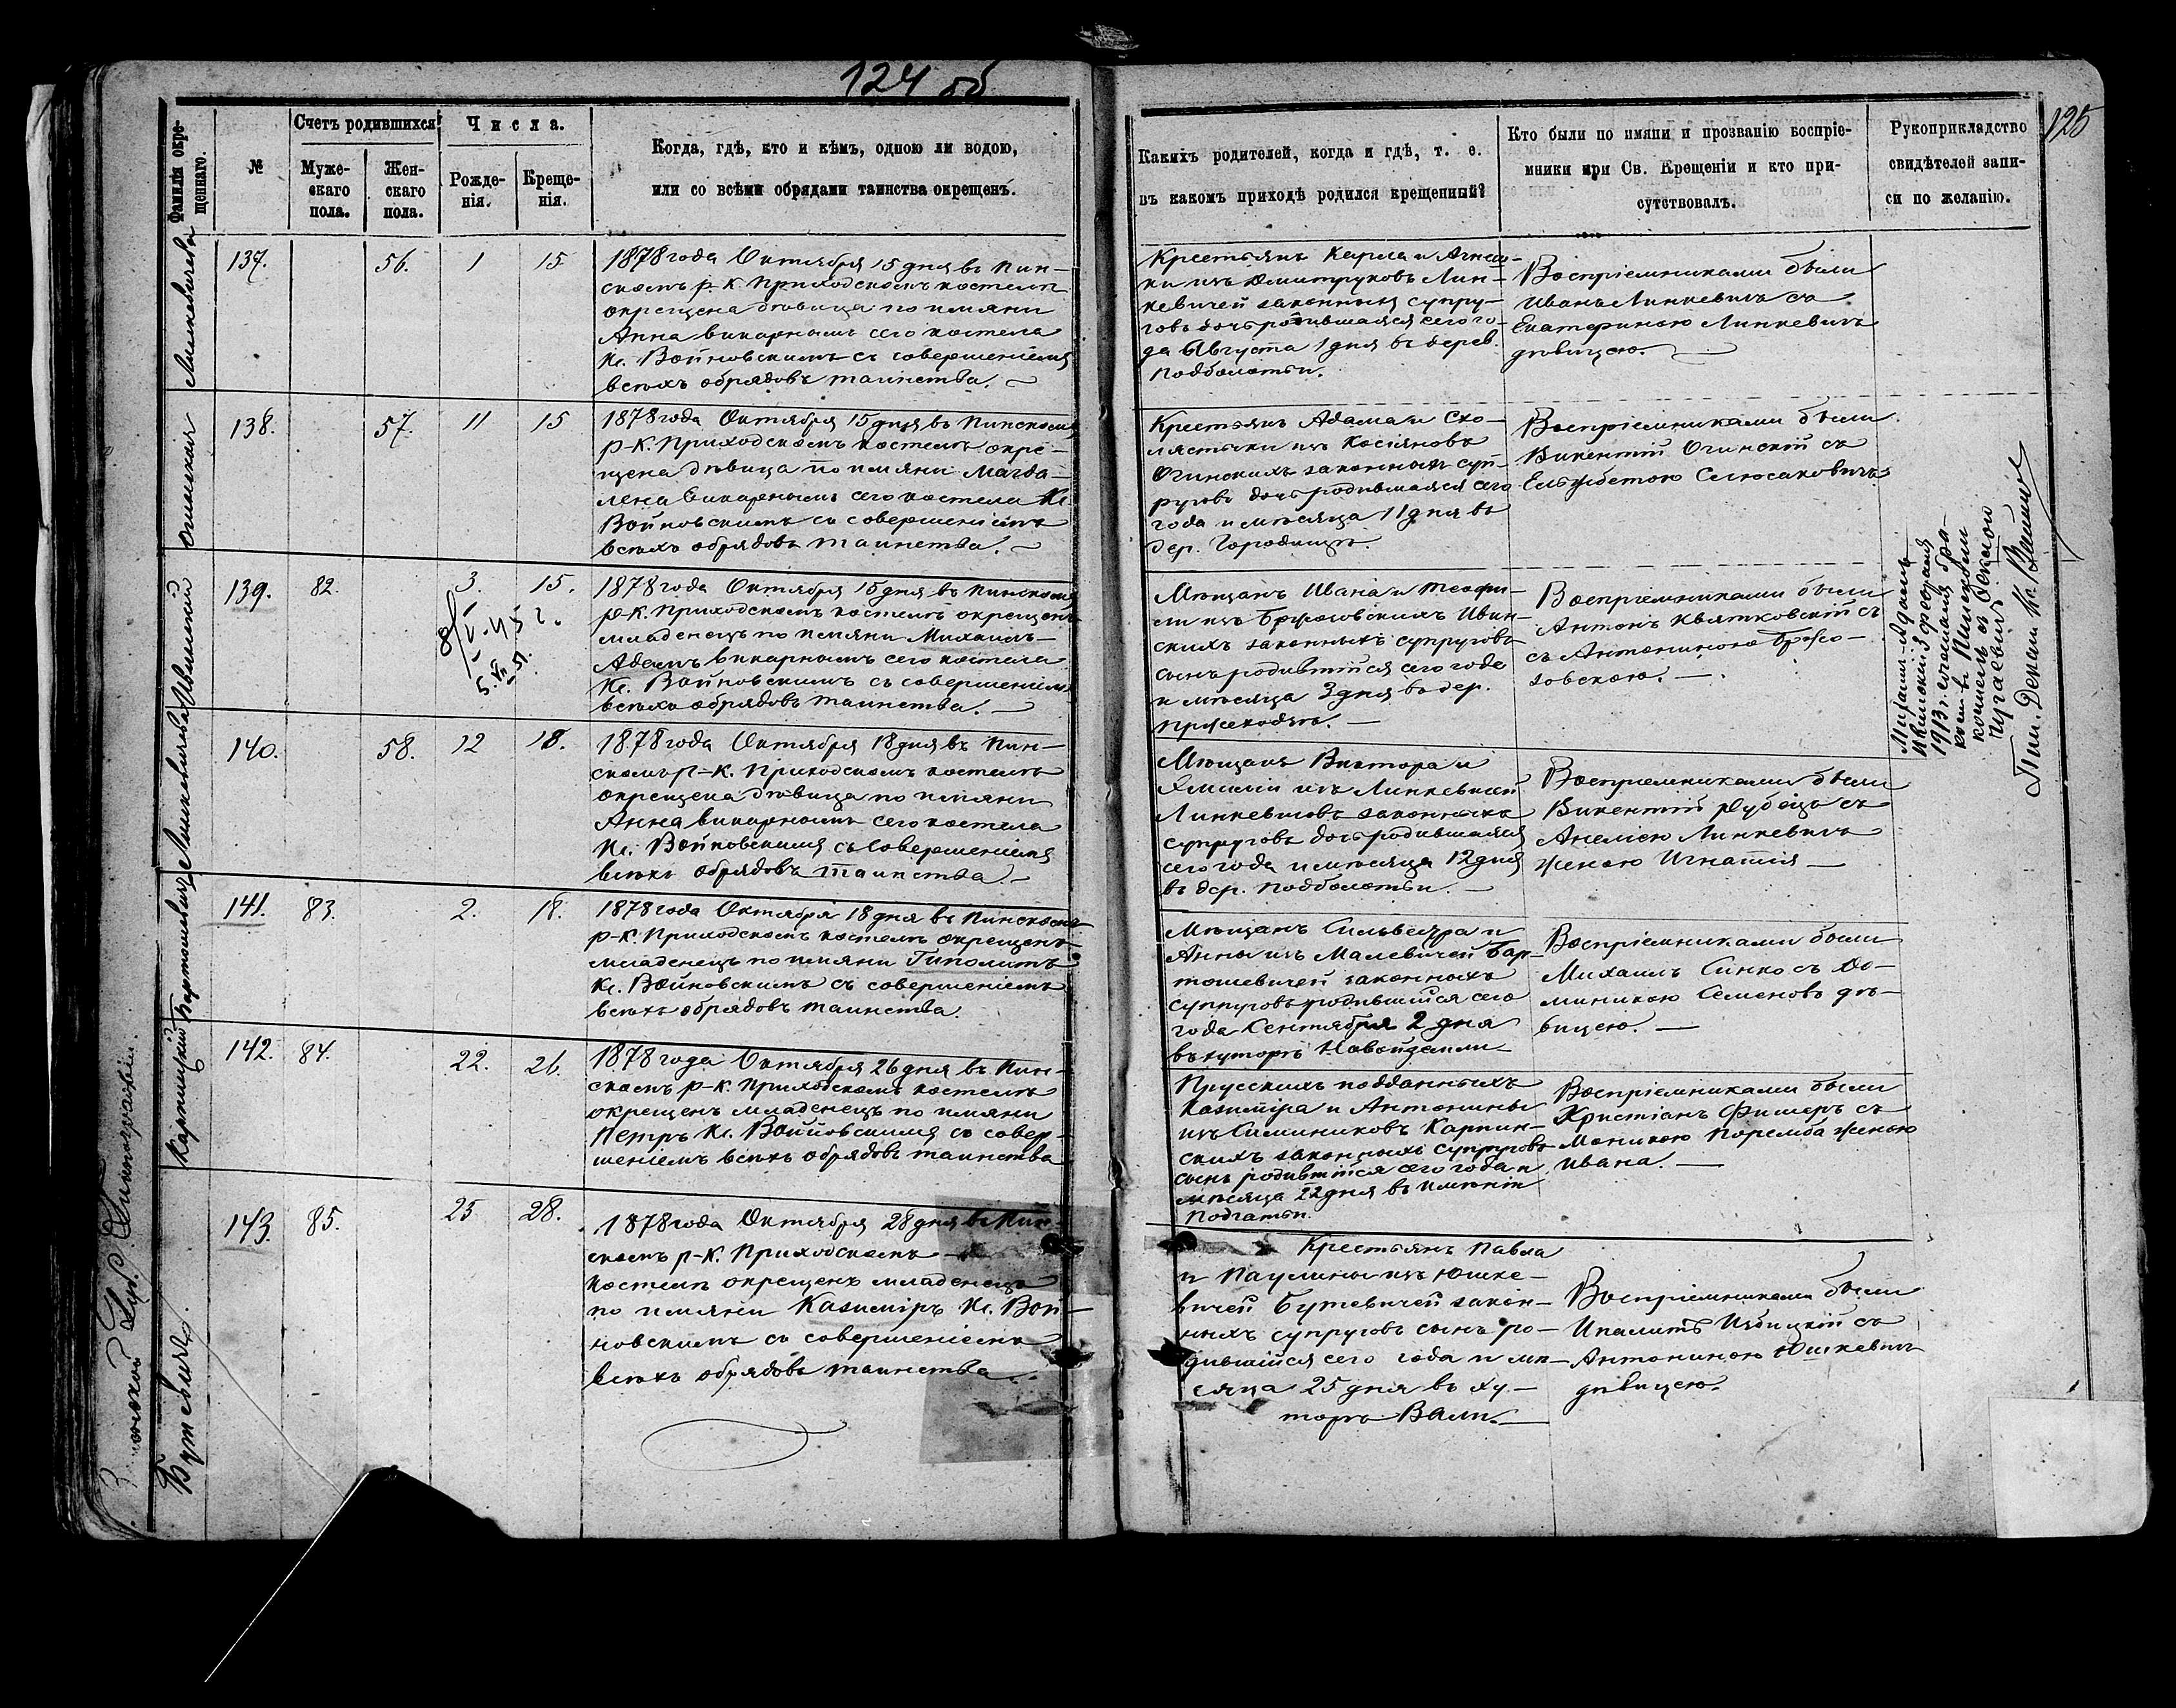 124 об
125
Фамилія окре-
щеннаго.
№
Счетъ родившихся
Муже-
скаго
пола.
Жен-
скаго
пола.
Числа.
Рожде-
нія.
Креще-
нія.
Когда, гдѣ, кто и кѣмъ, одною ли водою,
или со всѣми обрядами таинства окрещенъ.
Какихъ родителей, когда и гдѣ, т. е.
въ какомъ приходѣ родился крещенный?
Кто были по имяни и прозванію воспріе-
мники при Св. Крещеніи и кто при-
сутствовалъ.
Рукоприкладство
свидѣтелей запи-
си по желанію.
Линкевичева
137.
56.
1
15
1878 года Октября 15 дня въ Пин-
скомъ р-к. Приходскомъ костелѣ
окрещена дѣвица по имяни
Анна викарнымъ сего костела
Кс. Войновскимъ съ совершеніемъ
всѣхъ обрядовъ таинства.
Крестьянъ Карла и Агнеш-
ки изъ Дмитруковъ Лин-
кевичей законныхъ супру-
говъ дочь родившаяся сего го-
да Августа 1 дня въ дерев.
Подболотьи.
Воспріемниками были
Иванъ Линкевичъ съ
Екатериною Линкевичъ
дѣвицею.
Огинская
138.
57.
11
15
1878 года Октября 15 дня въ Пинскомъ
р-к. Приходскомъ костелѣ окре-
щена дѣвица по имяни Магда-
лена викарнымъ сего костела Кс.
Войновскимъ съ совершеніемъ
всѣхъ обрядовъ таинства.
Крестьянъ Адама и Схо-
ластыки изъ Касіяновъ
Огинскихъ законныхъ суп-
руговъ дочь родившаяся сего
года и мѣсяца 11 дня въ
дер. Городищѣ.
Воспріемниками были
Викентій Огинскій съ
Ельжбетою
Ивинскій
139.
82.
3.
15.
1878 года Октября 15 дня въ Пинскомъ
р-к. Приходскомъ костелѣ окрещенъ
младенецъ по имяни Михаилъ-
Адамъ викарнымъ сего костела
Кс. Войновскимъ съ совершеніемъ
всѣхъ обрядовъ таинства.
Мѣщанъ Ивана и Теофи-
ли изъ Бржозовскихъ Ивин-
скихъ законныхъ супруговъ
сынъ родившійся сего года
и мѣсяца 3 дня въ дер.
Воспріемниками были
Антонъ Квятковскій съ
съ Антониною Бржо-
зовскою.
Михаилъ-Адамъ
Ивинскій 3 февраля
1913 г.
въ Пинскомъ
костелѣ съ
Пин. Декан. Кс.
Линкевичева
140.
58.
12
18.
1878 года Октября 18 дня въ Пин-
скомъ р-к. Приходскомъ костелѣ
окрещена дѣвица по имяни
Анна викарнымъ сего костела
Кс. Войновскимъ съ совершеніемъ
всѣхъ обрядовъ таинства.
Мѣщанъ Виктора и
Эмиліи изъ Линкевичей
Линкевичовъ законныхъ
супруговъ дочь родившаяся
сего года и мѣсяца 12 дня
въ дер. Подболотьи.
Воспріемниками были
Викентій Дубецъ съ
Анеліею Линкевичъ
женою Игнатія
Бартошевичъ
141.
83.
2.
18.
1878 года Октября 18 дня въ Пинскомъ
р-к. Приходскомъ костелѣ окрещенъ
младенецъ по имяни Гиполитъ
Кс. Войновскимъ съ совершеніемъ
всѣхъ обрядовъ таинства.
Мѣщанъ Сильвестра и
Анны изъ Малевичей Бар-
тошевичей законныхъ
супруговъ родившійся сего
года Сентября 2 дня
въ хуторѣ
Воспріемниками были
Михаилъ Синко съ До-
миникою Семеновъ дѣ-
вицею.
Карпинскій
142.
84.
22.
26.
1878 года Октября 26 дня въ Пин-
скомъ р-к. Приходскомъ костелѣ
окрещенъ младенецъ по имяни
Петръ Кс. Войновскимъ съ совер-
шеніемъ всѣхъ обрядовъ таинства
Прусскихъ подданныхъ
Казимира и Антонины
изъ Карпин-
скихъ законныхъ супруговъ
сынъ родившійся сего года и
мѣсяца 22 дня въ имѣніи
Подгатьи.
Воспріемниками были
Христіанъ Фишеръ съ
Моникою Поремба женою
Ивана.
Бутевичъ.
143.
85.
25
28.
1878 года Октября 28 дня въ Пин-
скомъ р-к. Приходскомъ
костелѣ окрещенъ младенецъ
по имяни Казимиръ Кс. Вой-
новскимъ съ совершеніемъ
всѣхъ обрядовъ таинства.
Крестьянъ Павла
и Паулины изъ Юшке-
вичей Бутевичей закон-
ныхъ супруговъ сынъ ро-
дившійся сего года и мѣ-
сяца 25 дня въ ху-
торѣ Вали.
Воспріемниками были
Ипалитъ Избицкій съ
Антониною Юшкевичъ
дѣвицею.
Губ. Типографіи.